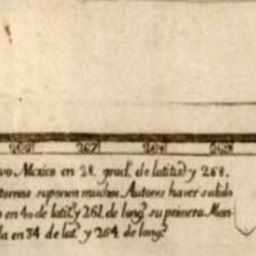 266 267 268 269
vo Mexico en 28. grad.ˢ de latitud y 268.
tornos suponen muchos Autores haver salido
o en 40 de latit.ᵈ y 261. de long.ᵈ su primera Man-
la en 34 de lat.ᵈ y 264. de long.ᵈ